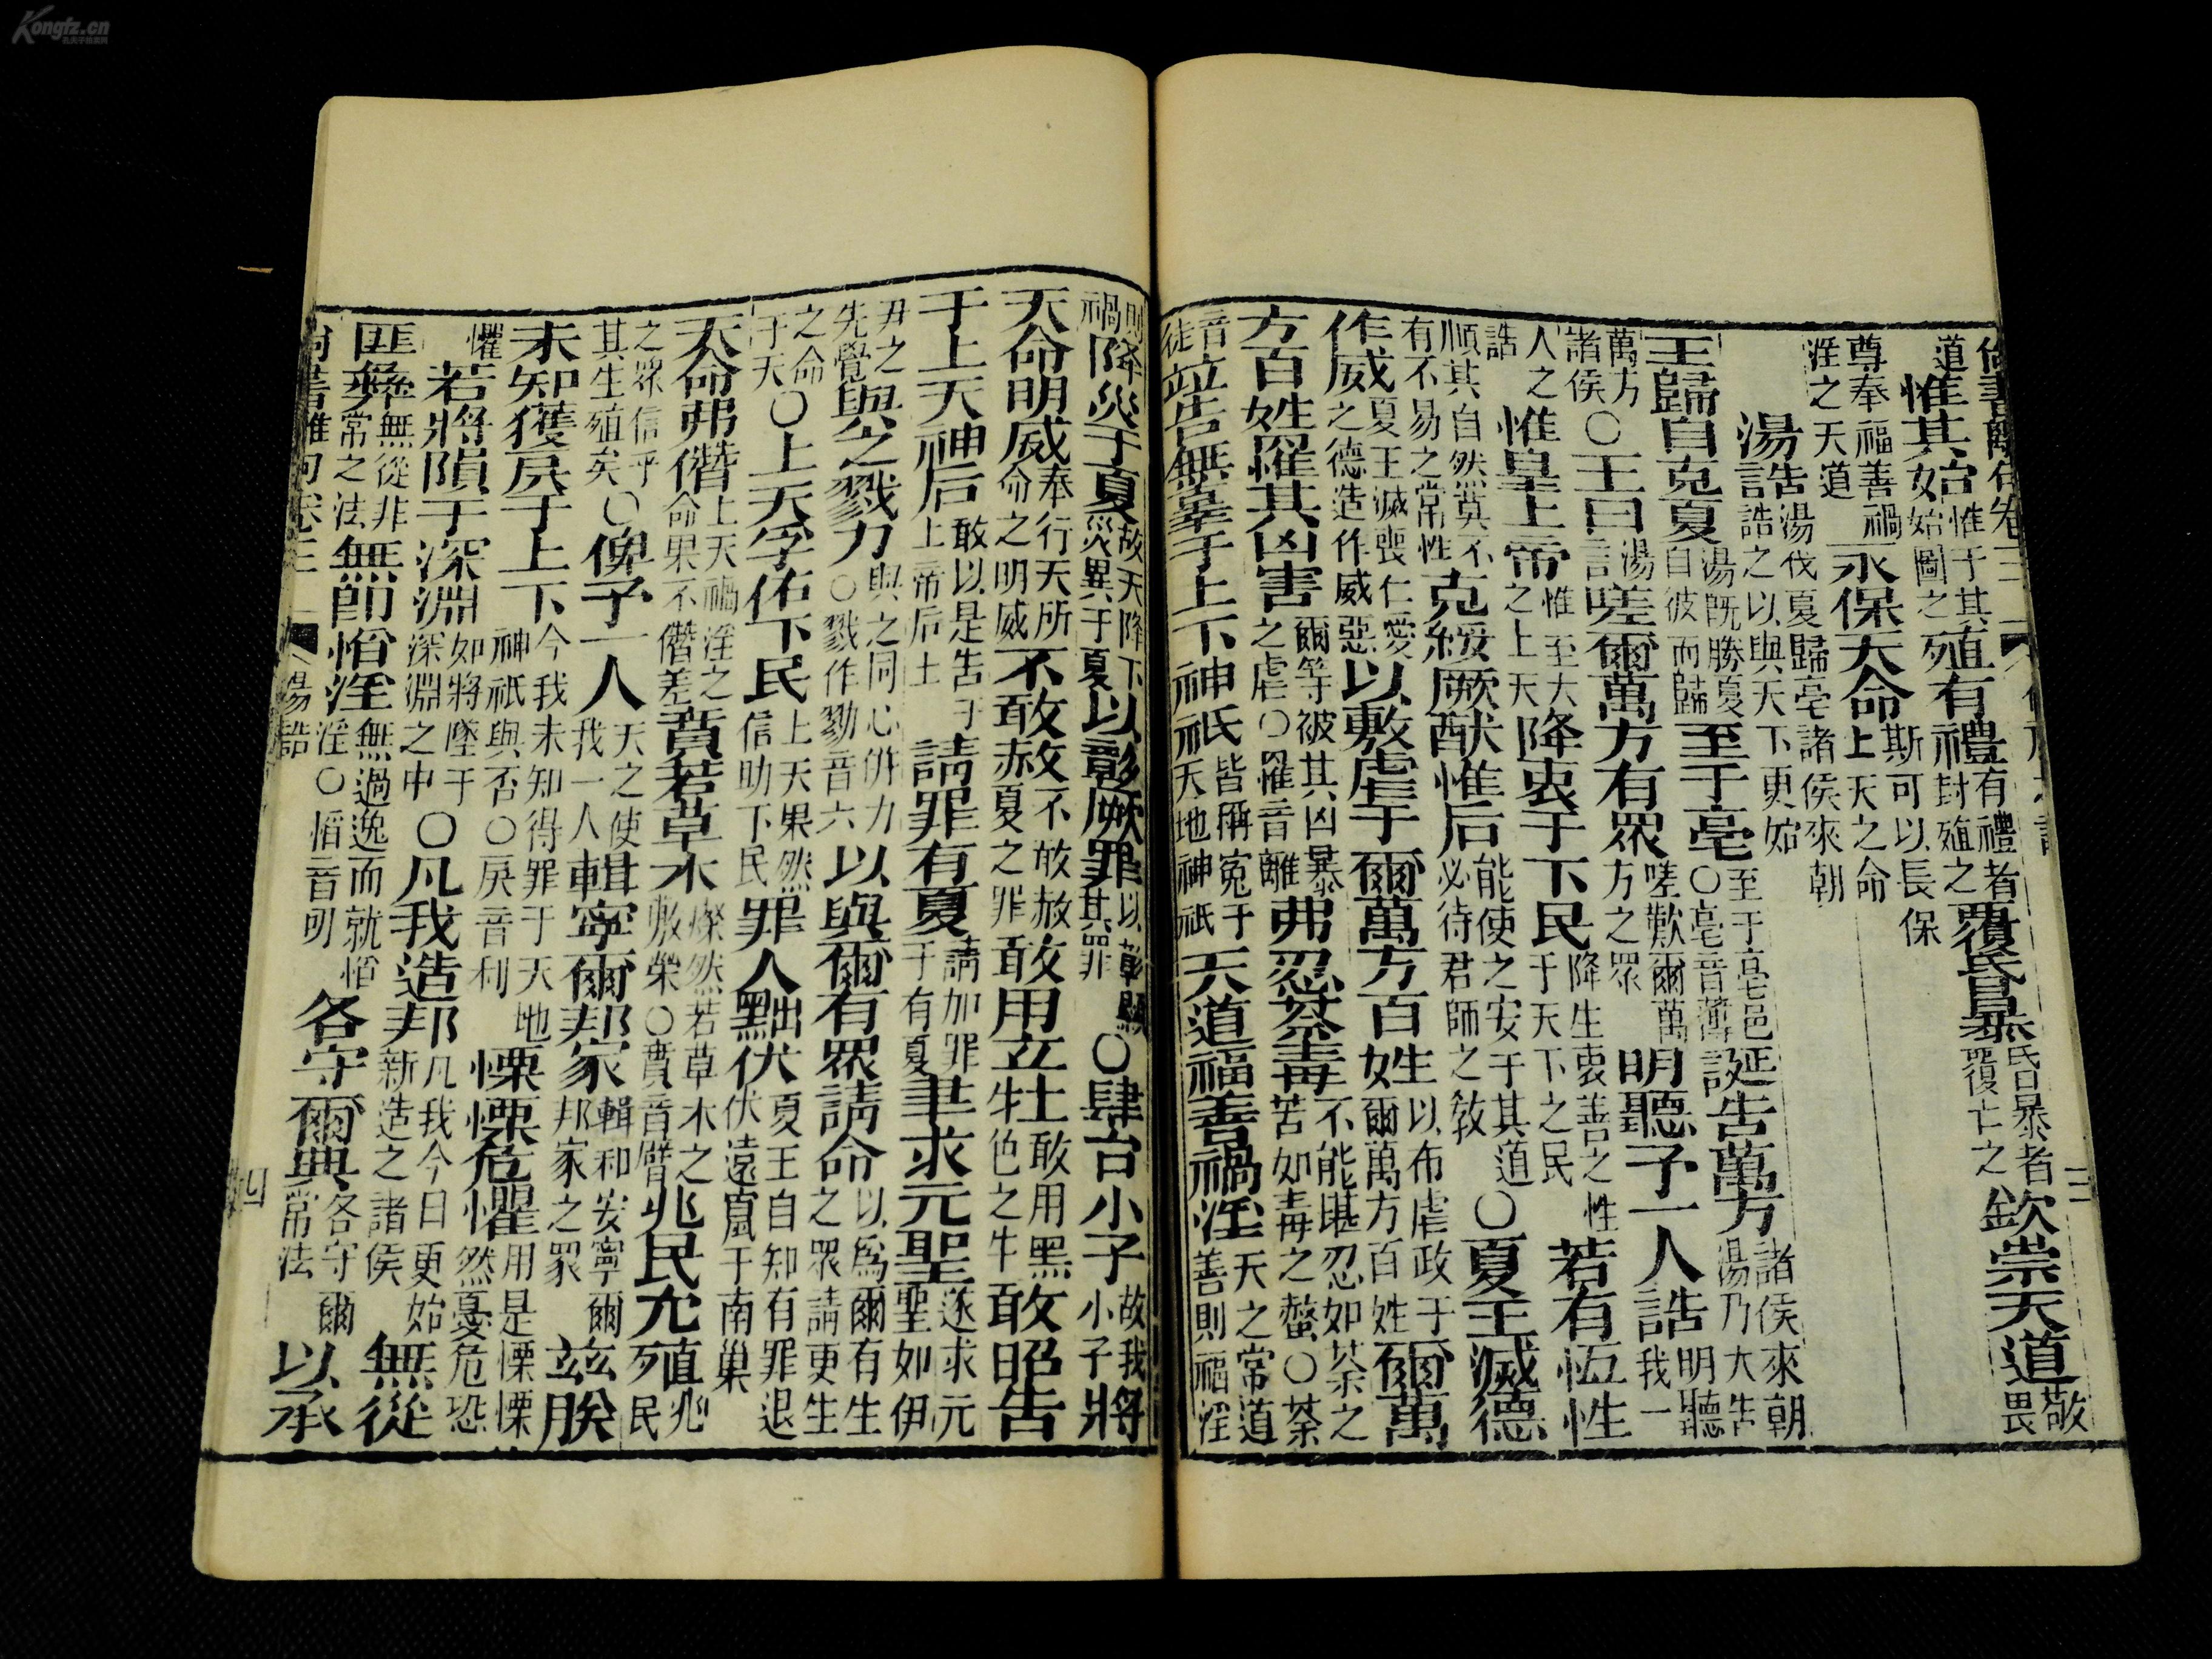 尚書離句卷三 三
道惟其始惟于其始圖之殖有禮有禮者封殖之覆昏暴昏暴者覆亡之欽崇天道敬畏
尊奉福善禍淫之天道永保天命斯可以長保上天之命
湯誥湯伐夏歸亳諸侯來朝誥之以與天下更始
王歸自克夏湯既勝夏自彼而歸至于亳至于亳邑○亳音薄誕告萬方諸侯來朝湯乃大告
萬方諸侯○王曰湯言嗟爾萬方有眾嗟歎爾萬方之眾明聽予一人誥明聽我一
人之誥惟皇上帝惟至大之上天降衷于下民降生衷善之性于天下之民若有恆性
順其自然莫不有不易之常性克綏厥猷惟后能使之安于其道必待君師之教○夏王滅德
作威夏王滅喪仁愛之德造作威惡以敷虐于爾萬方百姓以布虐政于爾萬方百姓爾萬
方百姓罹其凶害爾等被其凶暴之虐○罹音離弗忍荼毒不能堪忍如荼之苦如毒之螫○荼
音徒並告無辜于上下神祇皆稱冤于天地神祇天道福善禍淫天之常道善則福淫
則禍降災于夏故天降下災異于夏以彰厥罪以彰顯其罪○肆台小子故我小子將
天命明威奉行天所命之明威不敢赦不敢赦夏之罪敢用玄牡敢用黑色之牛敢昭告
于上天神后敢以是告于上帝后土請罪有夏請加罪于有夏聿求元聖遂求元聖如伊
尹之先覺與之戮力與之同心併力○戮作勠音六以與爾有眾請命以為爾有生之眾請更生
之命于天○上天孚佑下民上天果然信助下民罪人黜伏夏王自知有罪退伏遠竄于南巢
天命弗僭上天禍淫之命果不僭差賁若草木燦然若草木之敷榮○賁音臂兆民允殖兆民
之眾信乎其生殖矣○俾予一人天之使我一人輯寧爾邦家輯和安寧爾邦家之眾茲朕
未知獲戾于上下今我未知得罪于天地神祇與否○戾音利慄慄危懼用是慄慄然憂危恐
懼若將隕于深淵如將墜于深淵之中○凡我造邦凡我今日更始新造之諸侯無從
匪彝無從非常之法無即慆淫無過逸而就慆淫○慆音叨各守爾典各守爾常法以承
尚書離句卷三 湯誥 四